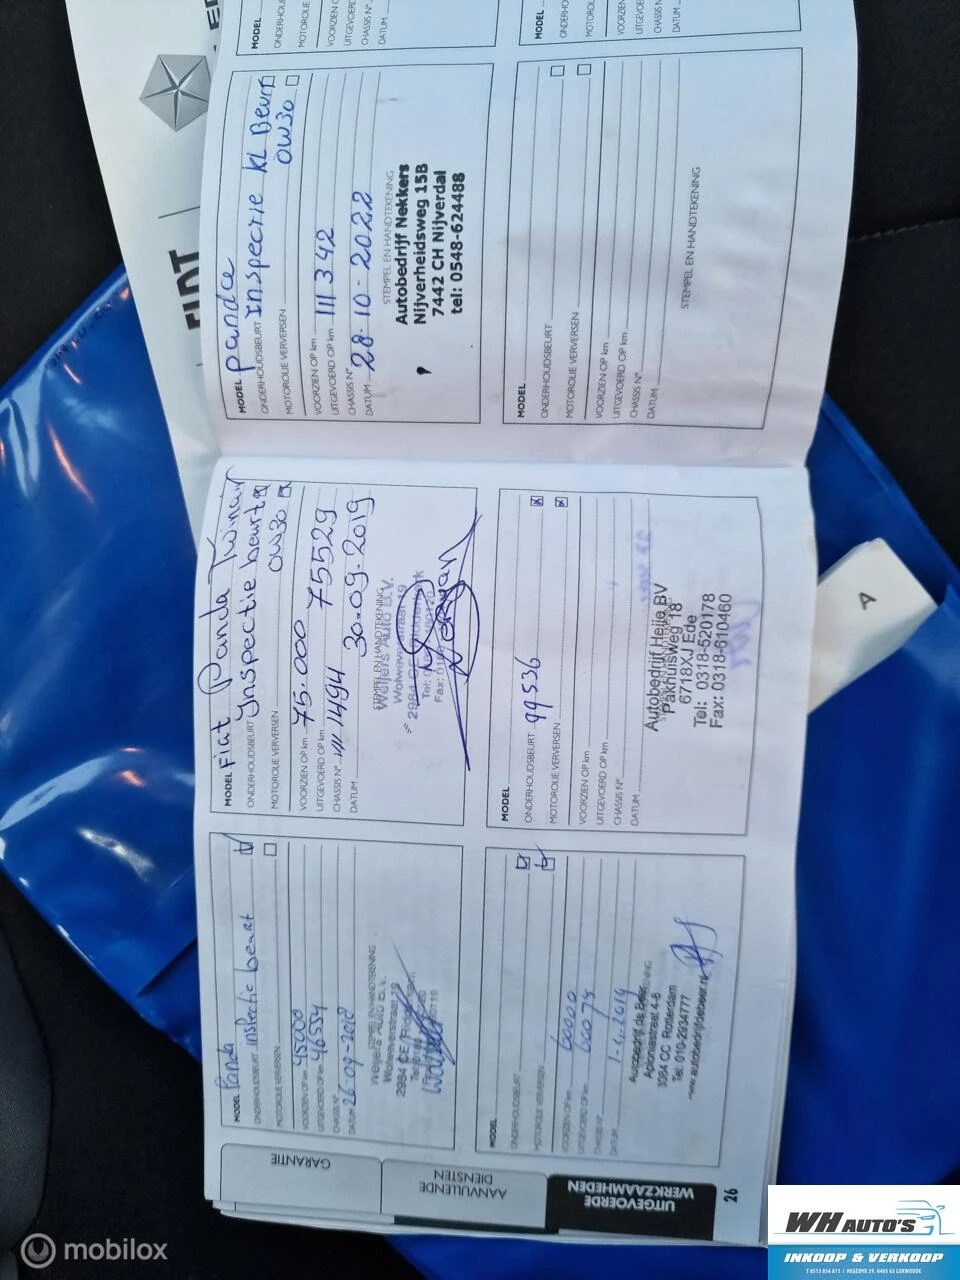 MODEL Panda
ONDERHOUDSBEURT inspectie beurt
MOTOROLIE VERVERSEN
VOORZIEN OP km 45000
UITGEVOERD OP km 46554
CHASSIS N°
DATUM 26-09-2018
STEMPEL EN HANDTEKENING
Weijers Auto B.V.
MODEL
ONDERHOUDSBEURT
MOTOROLIE VERVERSEN
VOORZIEN OP km 60000
UITGEVOERD OP km 60075
CHASSIS N°
DATUM 1-4-2019
Autobedrijf de Beer
Aploniastraat 4-6
3084 CC Rotterdam
Tel: 010-2934777
www.autobedrijfdebeer.nl
MODEL Fiat Panda Twinair
ONDERHOUDSBEURT Ynspectie beurt
MOTOROLIE VERVERSEN 0W30
VOORZIEN OP km 75.000
UITGEVOERD OP km 75529
CHASSIS N° 1494
DATUM 30-09-2019
STEMPEL EN HANDTEKENING
Weijers Auto B.V.
MODEL
ONDERHOUDSBEURT 99536
MOTOROLIE VERVERSEN
VOORZIEN OP km
UITGEVOERD OP km
CHASSIS N°
DATUM
Autobedrijf Heije BV
Pakhuisweg 18
6718XJ Ede
Tel: 0318-520178
Fax: 0318-610460
MODEL Panda
ONDERHOUDSBEURT Inspectie kl Beurt
MOTOROLIE VERVERSEN 0W30
VOORZIEN OP km
UITGEVOERD OP km 111342
CHASSIS N°
DATUM 28-10-2022
STEMPEL EN HANDTEKENING
Autobedrijf Nekkers
Nijverheidsweg 15B
7442 CH Nijverdal
tel: 0548-624488
MODEL
ONDERHOUDSBEURT
MOTOROLIE VERVERSEN
VOORZIEN OP km
UITGEVOERD OP km
CHASSIS N°
DATUM
STEMPEL EN HANDTEKENING
MODEL
ONDERHOUDSBEURT
MOTOROLIE
VOORZIEN OP
UITGEVOERD
CHASSIS N°
DATUM
MODEL
DATUM
GARANTIE
AANVULLENDE
DIENSTEN
UITGEVOERDE
WERKZAAMHEDEN
26
FIAT
A
mobilox
WH AUTO'S
INKOOP & VERKOOP
T 0513 856 811 | HEGEDYK 29, 8405 GS LUXWOUDE